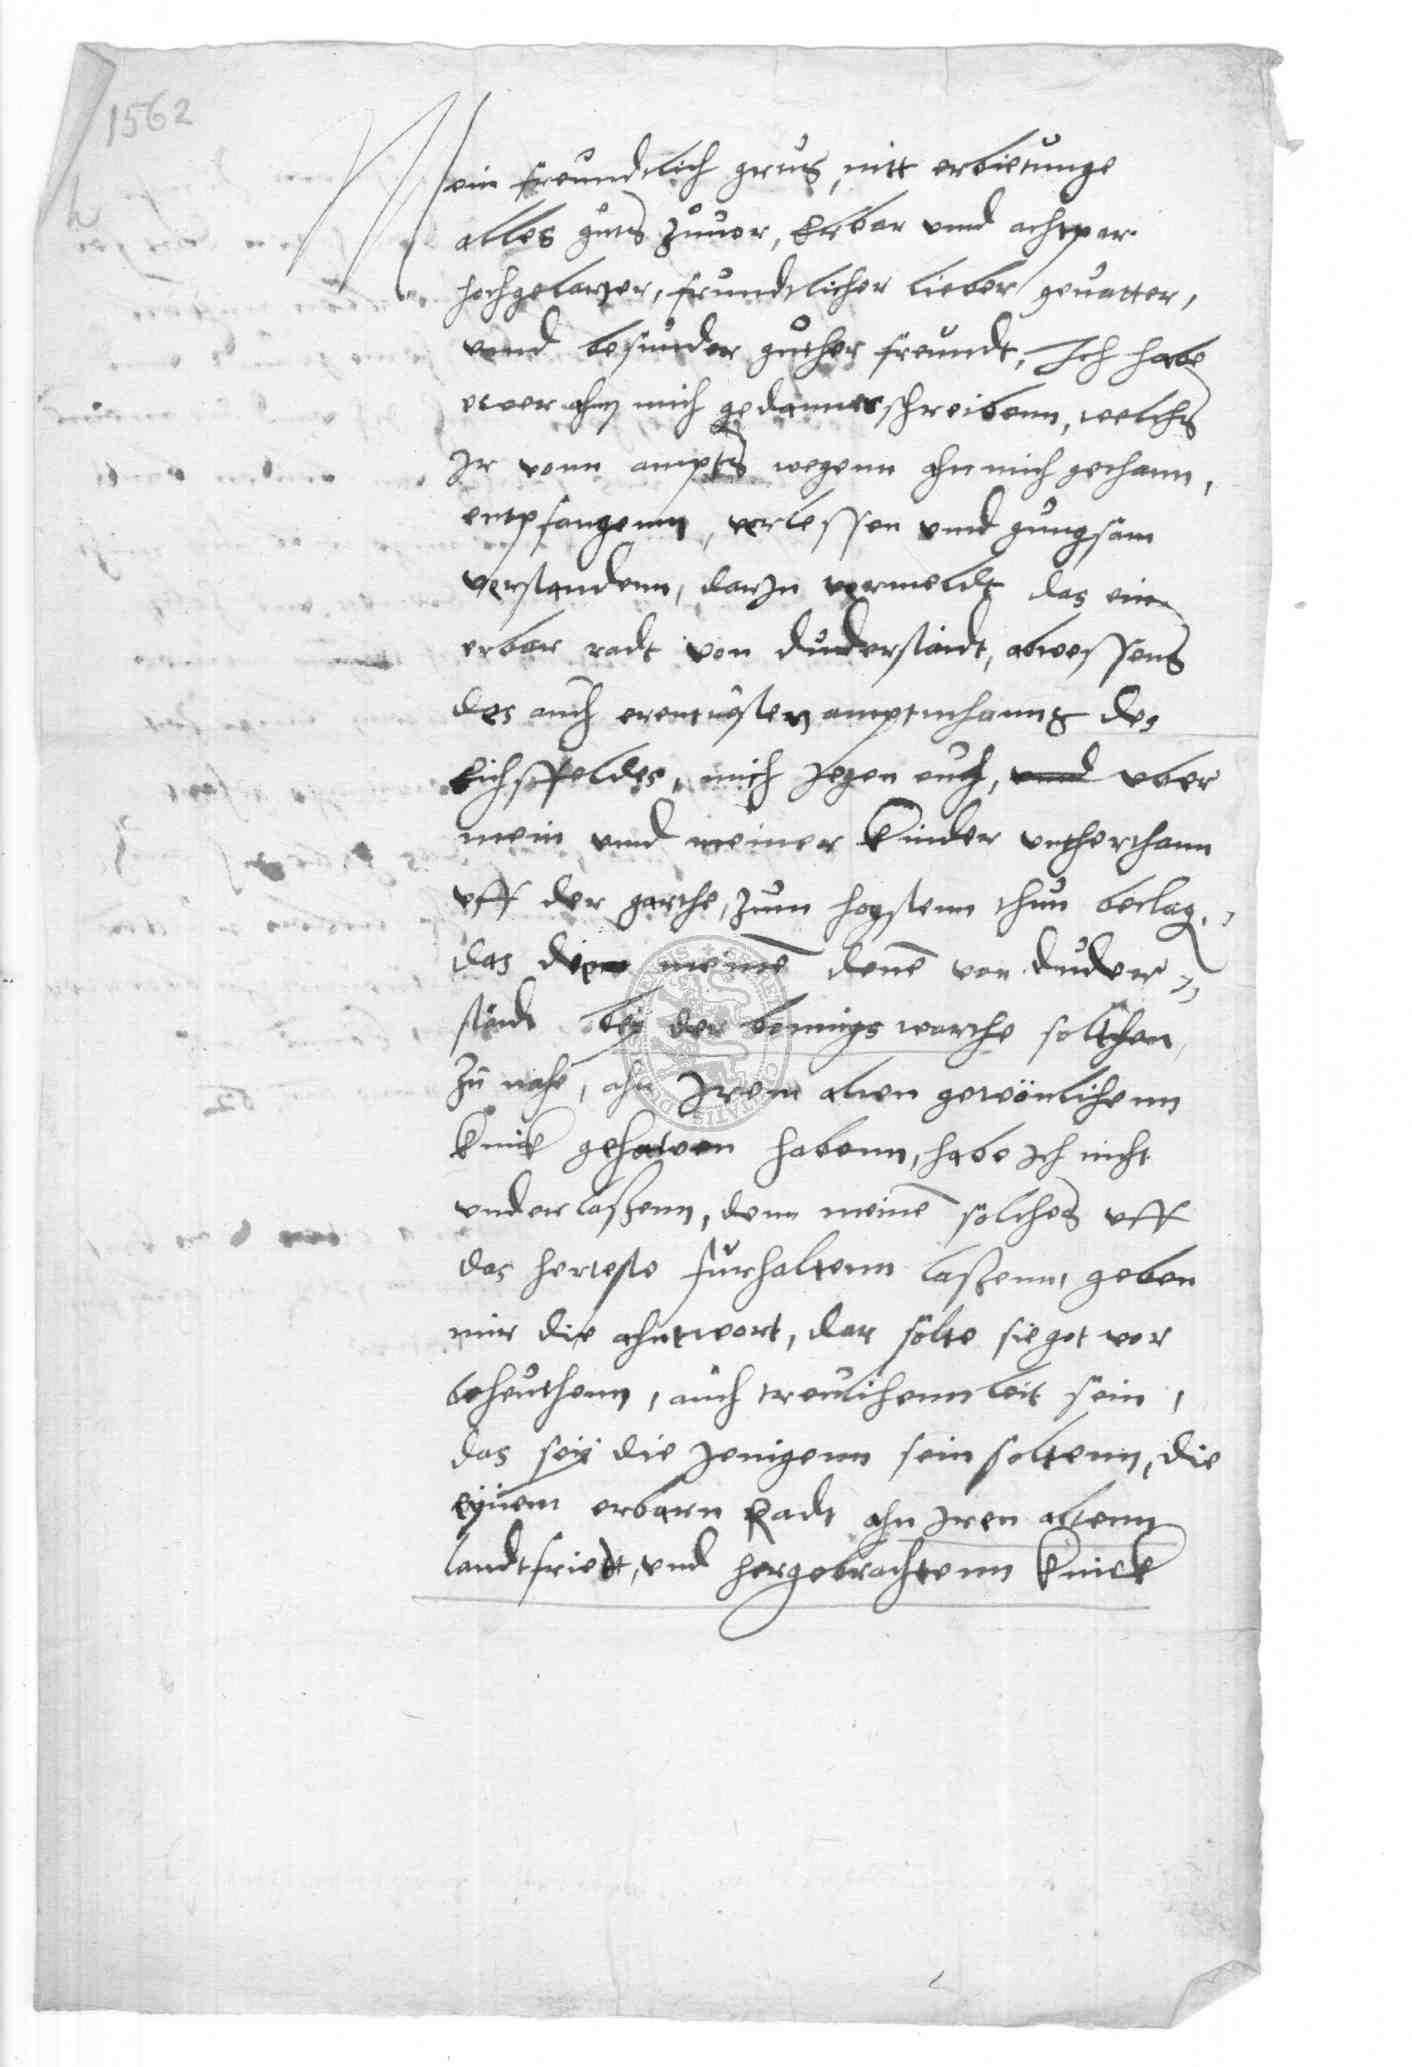 1562
Mein freundtlich grus, mitt erbietunge
alles guts zuuor, Erbar vnnd achtpar
hochgelarter, frundtlicher lieber geuatter,
vnnd besunder guther freundt, Ich habe
ewer ahn mich gedannes schreibenn, welchs
Ir vonn ampts wegenn ahn mich gethann,
entpfangenn, verlessen vnnd gungsam
verstandenn, darIn vermeldt das ein
erbar radt von Duderstadt, abwessens
des auch erentuesten amptmhanns des
Eichsffeldes, mich Jegen euch, vnnd vber
mein vnnd meiner kinder vntherthann
vff der garthe, zum hogstenn thun beclag,
das die meine denen von Duder
stadt bey der bonnigs warthe solthen
zu nahe, ahn Irem alten gewönlichenn
knick gehawen habenn, habe Ich nicht
vnderlaßenn, denn meine solches vff
das herteste furhaltenn laßenn, geben
mir die ahntwort, dar solte sie got vor
behuthenn, auch treulichenn leit sein,
das sey die Jenigenn sein soltenn, die
eynem erbarn Radt ahn Iren altenn
landtfriedt, vnd hergebrachtenn knick